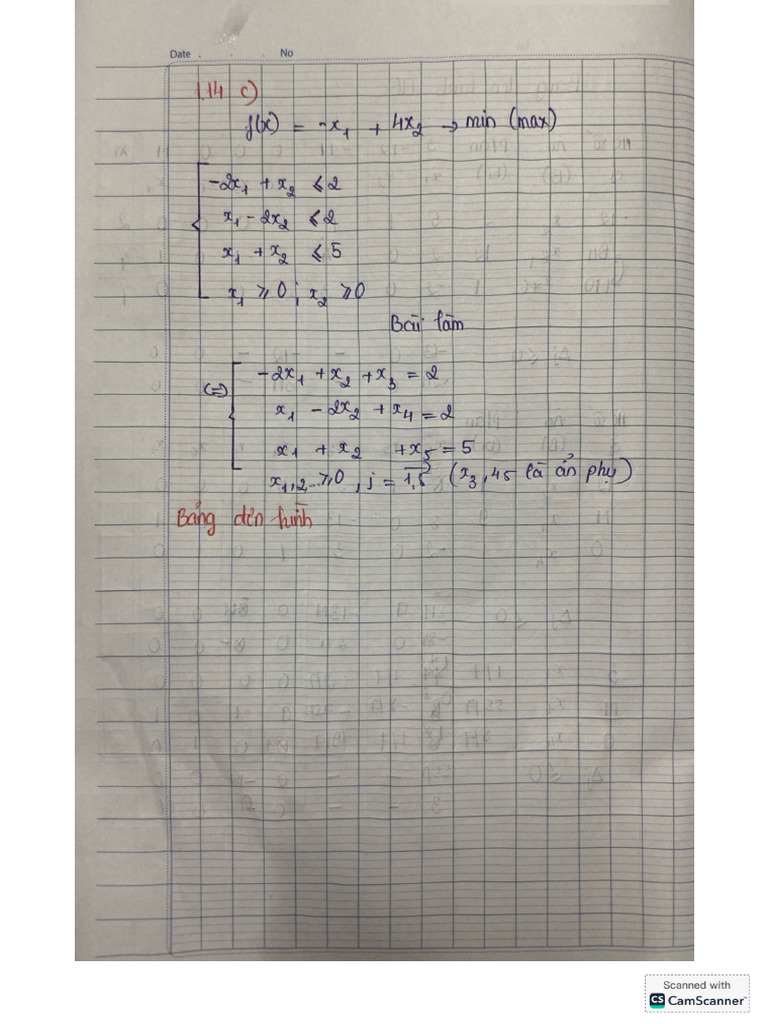 Date . . . No
1.14 c)
f(x) = -x₁ + 4x₂ → min (max)
-2x₁ + x₂ ≤ 2
x₁ - 2x₂ ≤ 2
x₁ + x₂ ≤ 5
x₁ ≥ 0 ; x₂ ≥ 0
Bài làm
⇔ -2x₁ + x₂ + x₃ = 2
x₁ - 2x₂ + x₄ = 2
x₁ + x₂ + x₅ = 5
x₁,₂... ≥ 0 , j = 1,5 (x₃,45 là ẩn phụ)
Bảng đơn hình
Scanned with
CS CamScanner